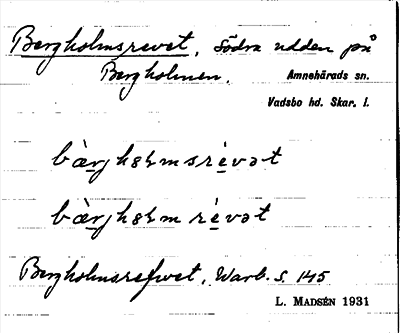 Bergholmsrevet, Södra udden på
Bergholmen.
Amnehärads sn.
Vadsbo hd. Skar. l.
bàrg hɷɫmsrévət
bàrg hɷɫm révət
Bergholmsrefwet, Warb. s. 145
L. MADSÉN 1931